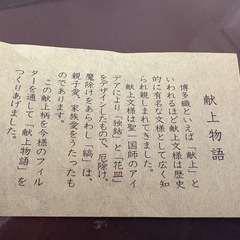 献上物語
博多織といえば「献上」と
いわれるほど献上文様は歴史
的に有名な文様として広く知
られ親しまれてきました。
献上文様は聖一国師のアイ
デアにより「独鈷」と「花皿」
をデザインしたもので、厄除け、
魔除けをあらわし「縞」は、
親子愛、家族愛をうたったも
のであります。
この献上柄を今様のフィル
ターを通して「献上物語」を
つくりあげました。